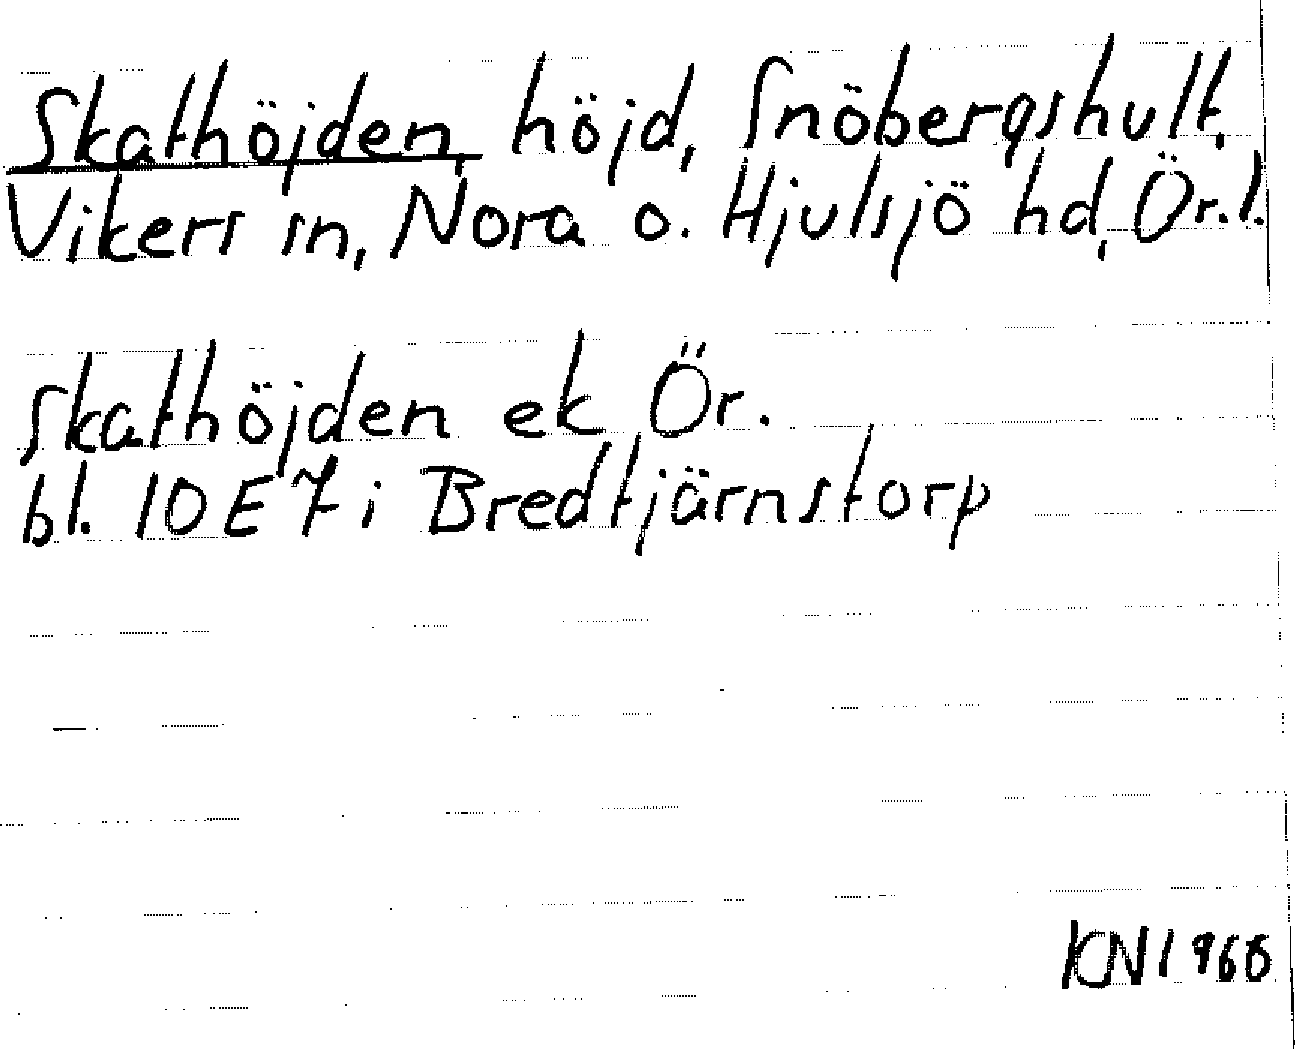 Skathöjden, höjd, Snöbergshult,
Vikers sn, Nora o. Hjulsjö hd, Ör. l.
Skathöjden ek Ör.
bl. 10E7i Bredtjärnstorp
KN 1968